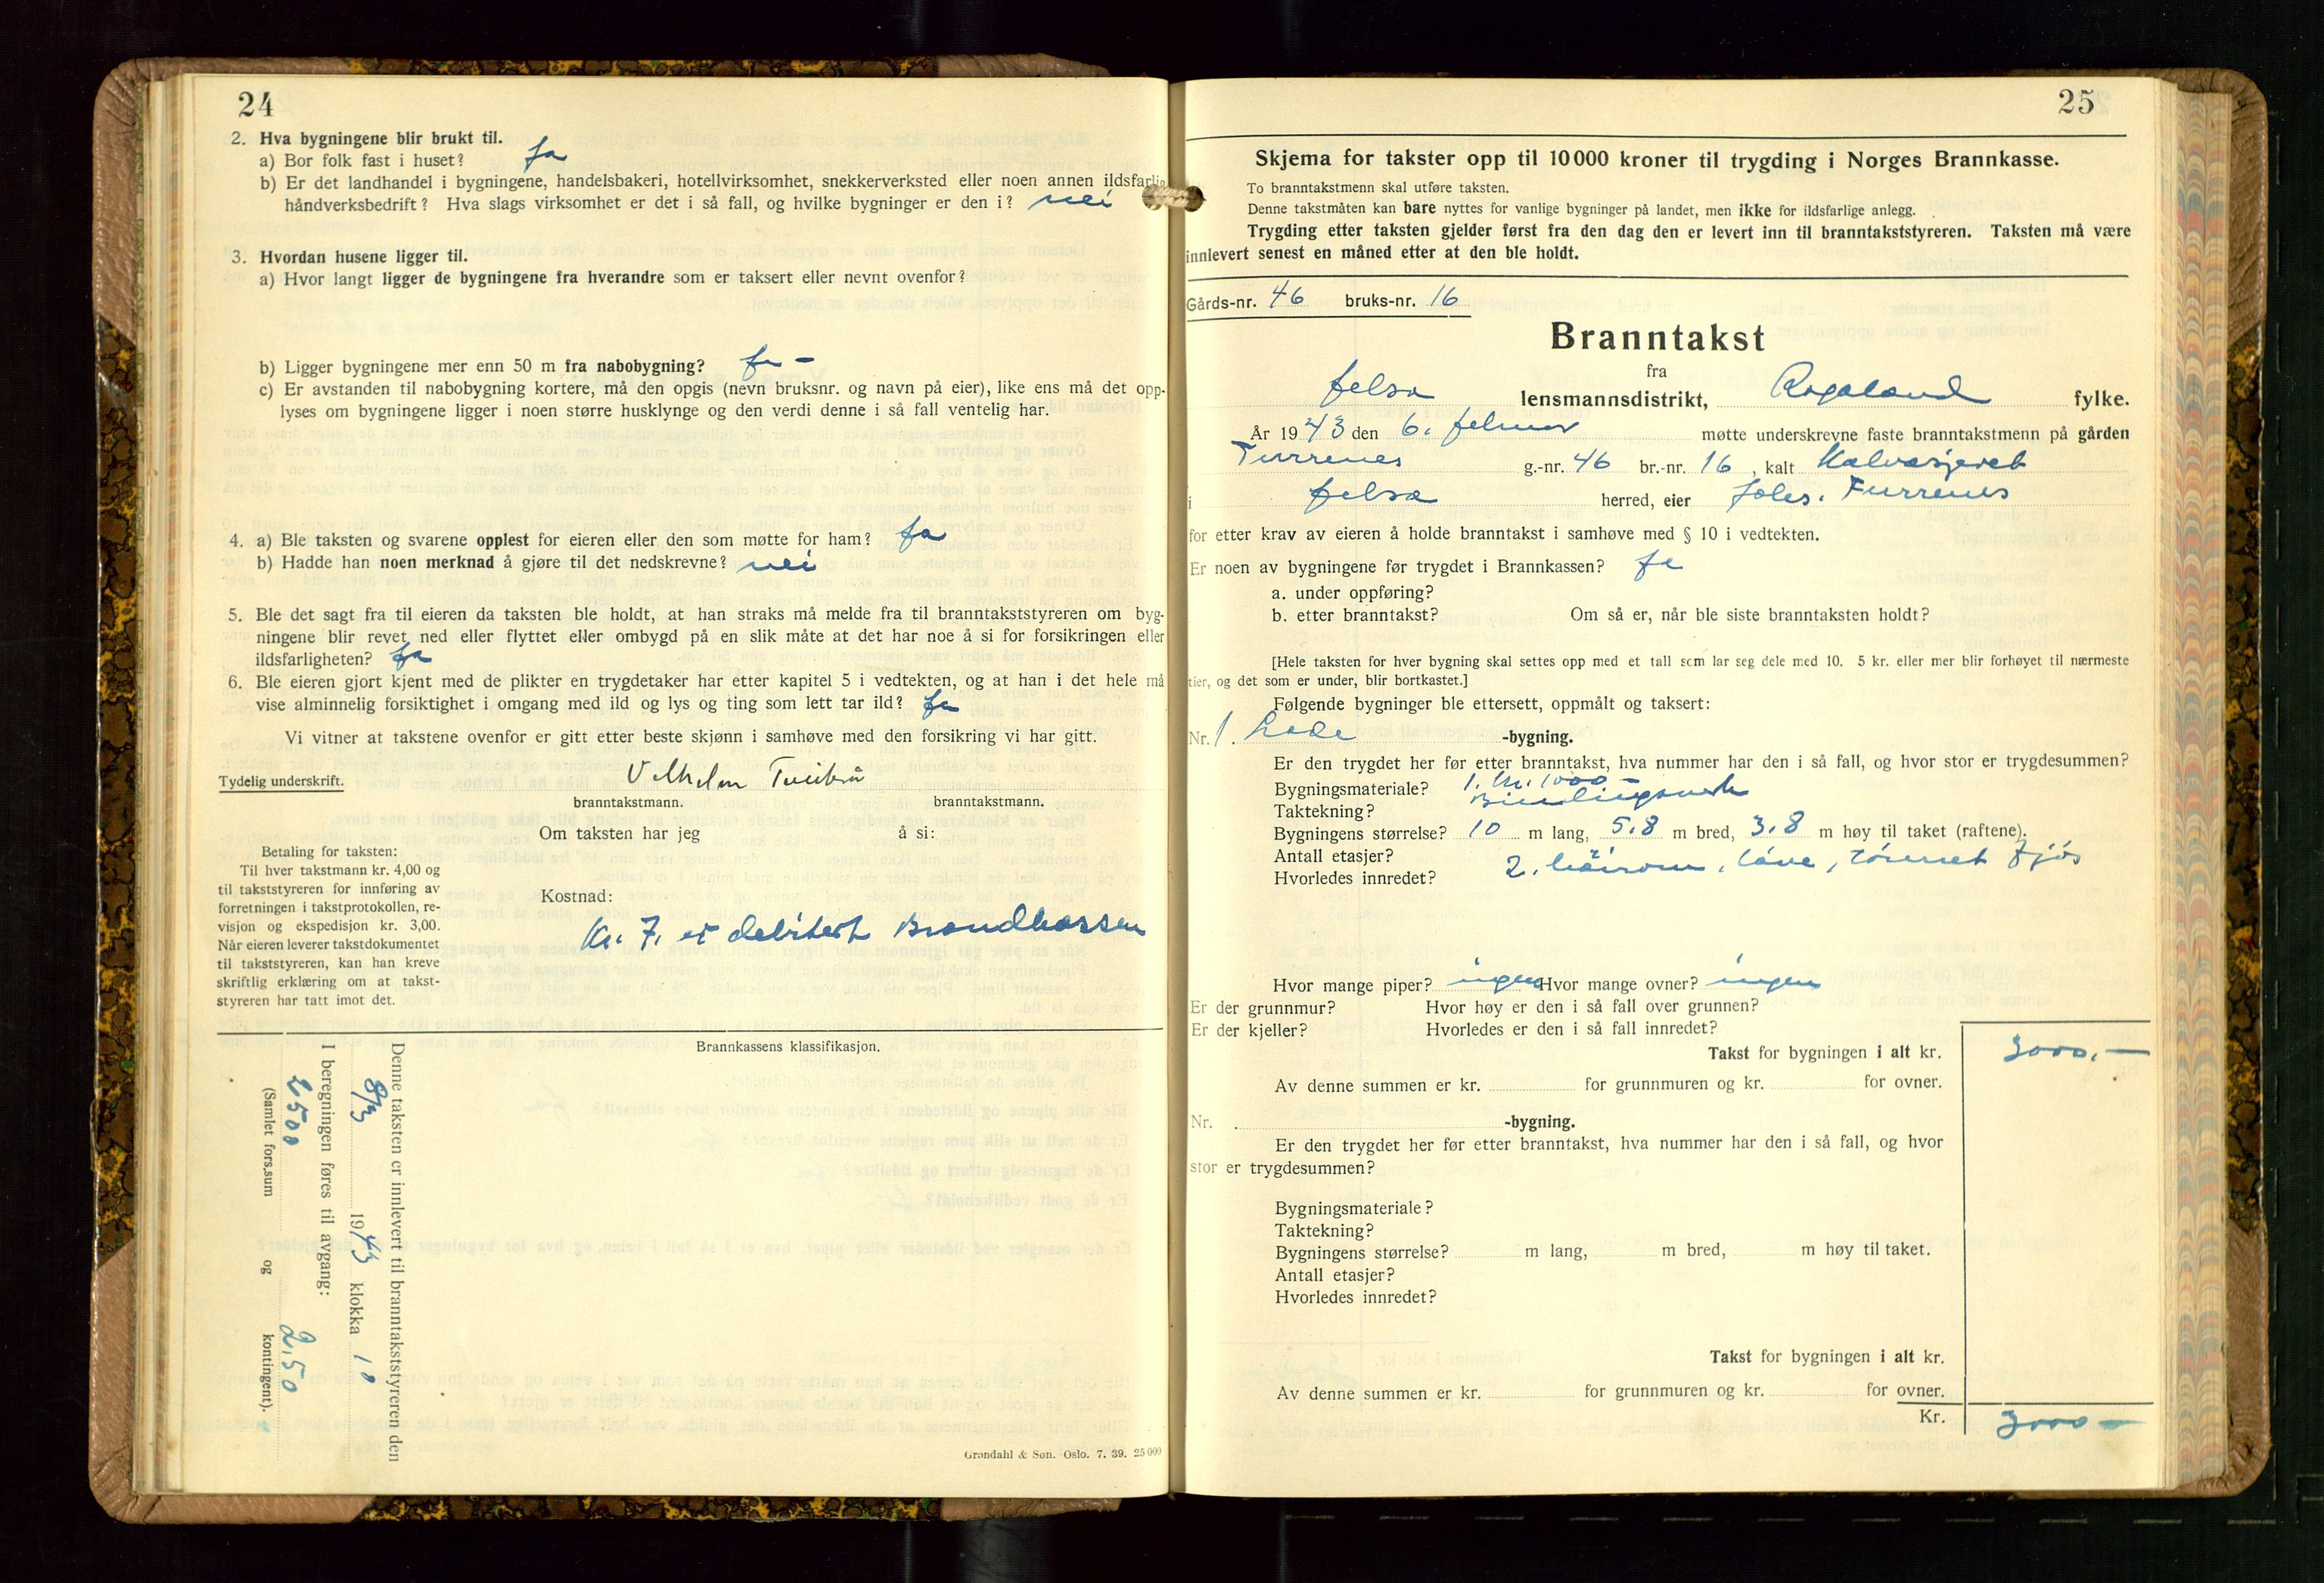 24
2. Hva bygningene blir brukt til.
a) Bor folk fast i huset? Ja
b) Er det landhandel i bygningene, handelsbakeri, hotellvirksomhet, snekkerverksted eller noen annen ildsfarlig
håndverksbedrift? Hva slags virksomhet er det i så fall, og hvilke bygninger er den i? nei
3. Hvordan husene ligger til.
a) Hvor langt ligger de bygningene fra hverandre som er taksert eller nevnt ovenfor?
b) Ligger bygningene mer enn 50 m fra nabobygning? Ja –
c) Er avstanden til nabobygning kortere, må den opgis (nevn bruksnr. og navn på eier), like ens må det opp-
lyses om bygningene ligger i noen større husklynge og den verdi denne i så fall ventelig har.
4. a) Ble taksten og svarene opplest for eieren eller den som møtte for ham? Ja
b) Hadde han noen merknad å gjøre til det nedskrevne? nei
5. Ble det sagt fra til eieren da taksten ble holdt, at han straks må melde fra til branntakststyreren om byg-
ningene blir revet ned eller flyttet eller ombygd på en slik måte at det har noe å si for forsikringen eller
ildsfarligheten? Ja
6. Ble eieren gjort kjent med de plikter en trygdetaker har etter kapitel 5 i vedtekten, og at han i det hele må
vise alminnelig forsiktighet i omgang med ild og lys og ting som lett tar ild? Ja
Vi vitner at takstene ovenfor er gitt etter beste skjønn i samhøve med den forsikring vi har gitt.
Tydelig underskrift.
Vilhelm
branntakstmann. branntakstmann.
Om taksten har jeg å si:
Betaling for taksten:
Til hver takstmann kr. 4,00 og
til takststyreren for innføring av
forretningen i takstprotokollen, re-
visjon og ekspedisjon kr. 3,00.
Når eieren leverer takstdokumentet
til takststyreren, kan han kreve
skriftlig erklæring om at takst-
styreren har tatt imot det.
Kostnad:
Kr. 7, er debitert Brandkassen
Brannkassens klassifikasjon.
Denne taksten er innlevert til branntakststyreren den
8/3 1943 klokka 10
I beregningen føres til avgang:
2500 2,50
(Samlet fors.sum og kontingent).
Grøndahl & Søn. Oslo. 7. 39. 25 000
25
Skjema for takster opp til 10 000 kroner til trygding i Norges Brannkasse.
To branntakstmenn skal utføre taksten.
Denne takstmåten kan bare nyttes for vanlige bygninger på landet, men ikke for ildsfarlige anlegg.
Trygding etter taksten gjelder først fra den dag den er levert inn til branntakststyreren. Taksten må være
innlevert senest en måned etter at den ble holdt.
Gårds-nr. 46 bruks-nr. 16
Branntakst
fra
Jelsa lensmannsdistrikt, Rogaland fylke.
År 1943 den 6. februar møtte underskrevne faste branntakstmenn på gården
Furrenes g.-nr. 46 br.-nr. 16, kalt
i Jelsa herred, eier Johs. Furrenes
for etter krav av eieren å holde branntakst i samhøve med § 10 i vedtekten.
Er noen av bygningene før trygdet i Brannkassen? Ja
a. under oppføring?
b. etter branntakst? Om så er, når ble siste branntaksten holdt?
[Hele taksten for hver bygning skal settes opp med et tall som lar seg dele med 10. 5 kr. eller mer blir forhøyet til nærmeste
tier, og det som er under, blir bortkastet.]
Følgende bygninger ble ettersett, oppmålt og taksert:
Nr. 1. Løde -bygning.
Er den trygdet her før etter branntakst, hva nummer har den i så fall, og hvor stor er trygdesummen?
1. kr. 1000 –
Bygningsmateriale? Bindingsverk
Taktekning?
Bygningens størrelse? 10 m lang, 5.8 m bred, 3.8 m høy til taket (raftene).
Antall etasjer?
Hvorledes innredet? 2 høirom, låve, tømret fjøs
Hvor mange piper? ingen Hvor mange ovner? ingen
Er der grunnmur? Hvor høy er den i så fall over grunnen?
Er der kjeller? Hvorledes er den i så fall innredet?
Takst for bygningen i alt kr. 3000,—
Av denne summen er kr. for grunnmuren og kr. for ovner.
Nr. -bygning.
Er den trygdet her før etter branntakst, hva nummer har den i så fall, og hvor
stor er trygdesummen?
Bygningsmateriale?
Taktekning?
Bygningens størrelse? m lang, m bred, m høy til taket.
Antall etasjer?
Hvorledes innredet?
Takst for bygningen i alt kr.
Av denne summen er kr. for grunnmuren og kr. for ovner.
Kr. 3000 —